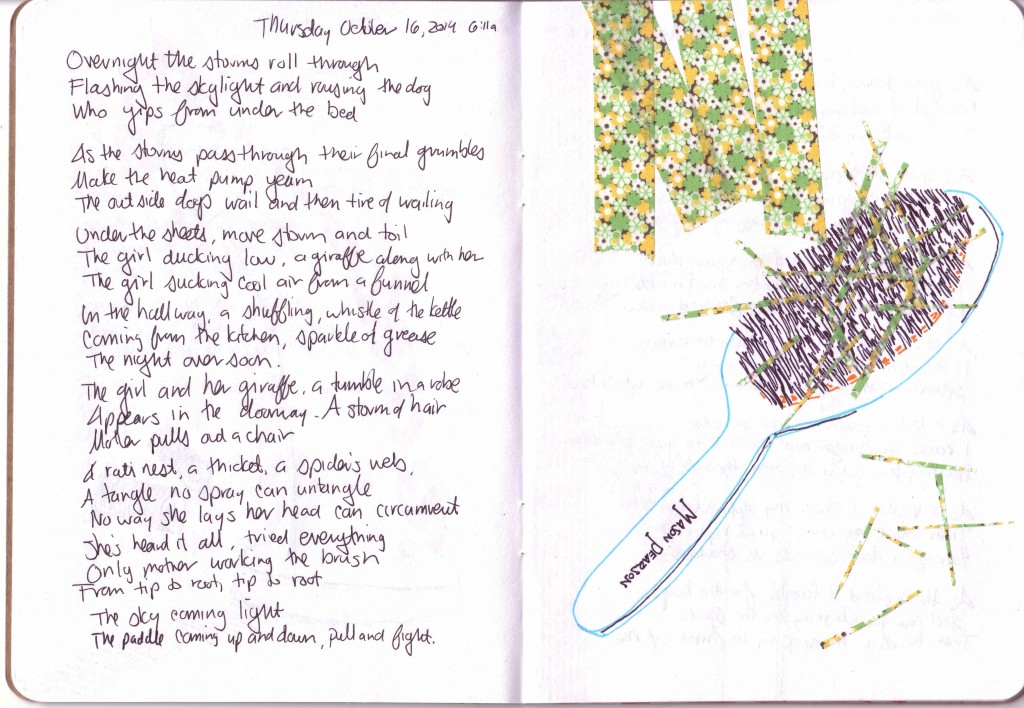 Thursday October 16, 2014 6:11a
Overnight the storms roll through
Flashing the skylight and rousing the dog
Who yips from under the bed
As the storms pass through their final grumbles
Make the heat pump yearn
The outside dogs wail and then tire of wailing
Under the sheets, more storm and toil
The girl ducking low, a giraffe along with her
The girl sucking cool air from a funnel
In the hallway, a shuffling, whistle of the kettle
Coming from the kitchen, sparkle of grease
The night over soon.
The girl and her giraffe, a tumble in a robe
Appears in the doorway - A storm of hair
Mother pulls out a chair
A rat's nest, a thicket, a spider's web,
A tangle no spray can untangle
No way she lays her head can circumvent
She's heard it all, tried everything
Only mother working the brush
From tip to root, tip to root
The sky coming light
The paddle coming up and down, pull and fight.
MASON PEARSON